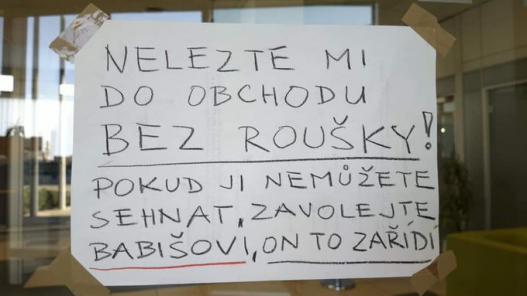 NELEZTE MI
DO OBCHODU
BEZ ROUŠKY!
POKUD JI NEMŮŽETE
SEHNAT, ZAVOLEJTE
BABIŠOVI, ON TO ZAŘÍDÍ